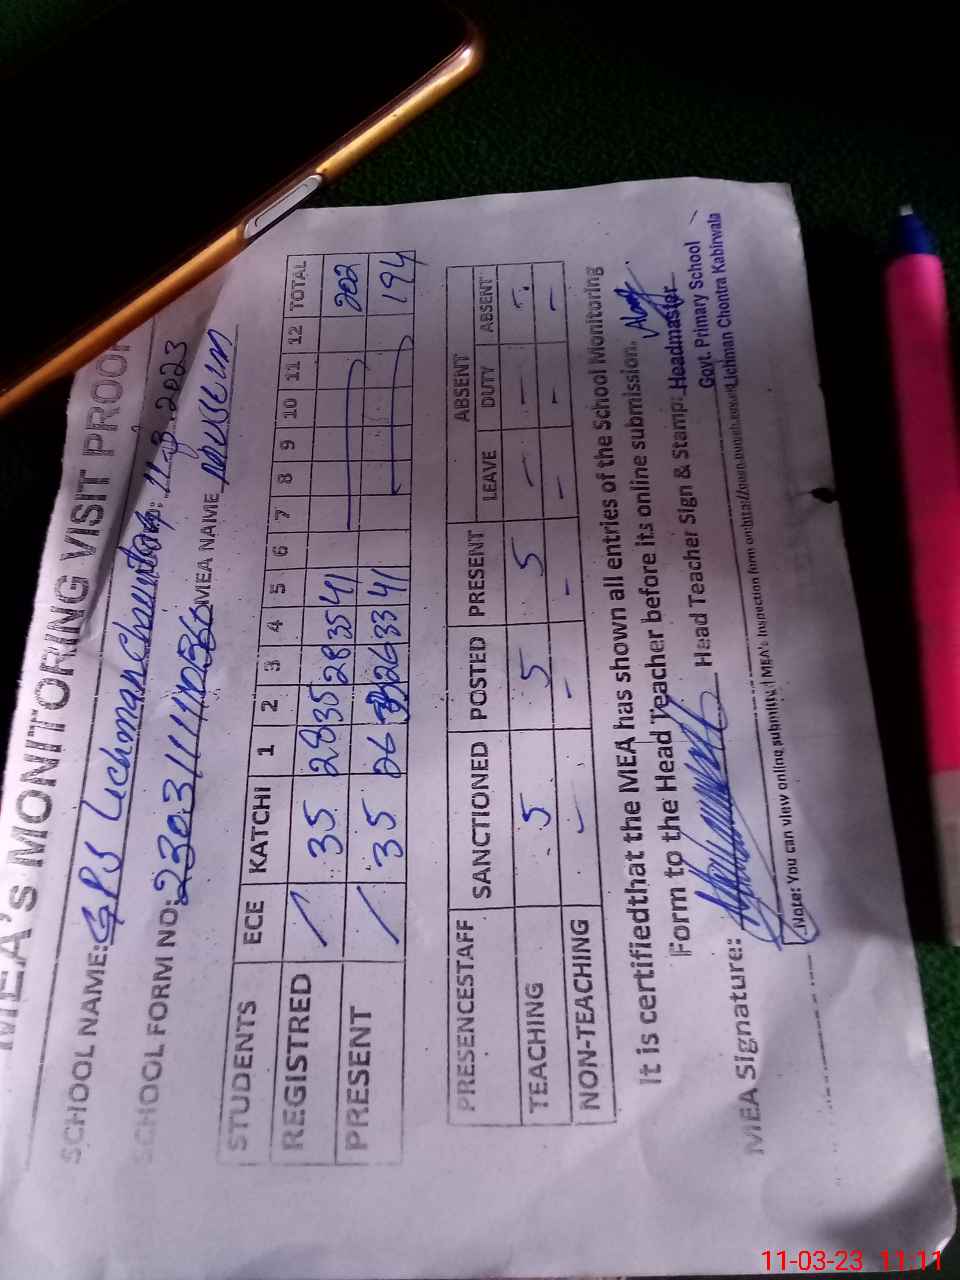 MEA's MONITORING VISIT PROOF
SCHOOL NAME: GPS Lichman 11-3-2023
SCHOOL FORM NO: MEA NAME
STUDENTS ECE KATCHI 1 2 3 4 5 6 7 8 9 10 11 12 TOTAL
REGISTRED / 35 28 35 28 35 41 202
PRESENT / 35 26 26 33 41 194
PRESENCESTAFF SANCTIONED POSTED PRESENT ABSENT
LEAVE DUTY ABSENT
TEACHING 5 5 5 - - -
NON-TEACHING - - - - - -
It is certifiedthat the MEA has shown all entries of the School Monitoring
Form to the Head Teacher before its online submission.
MEA Signature: Head Teacher Sign & Stamp: Headmaster
Govt. Primary School
Lichman Chontra Kabirwala
Note: You can view online submitted MEA's Instruction form on:
11-03-23 11:11